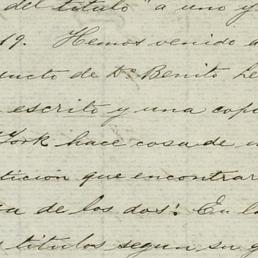 del titulo" a uno y
19. Hemos venido a
ucto de Dn Benito Le
escrito y una copi
York hace cosa de u
tición que encontrar
a de los dos! En la
titulos segun su g